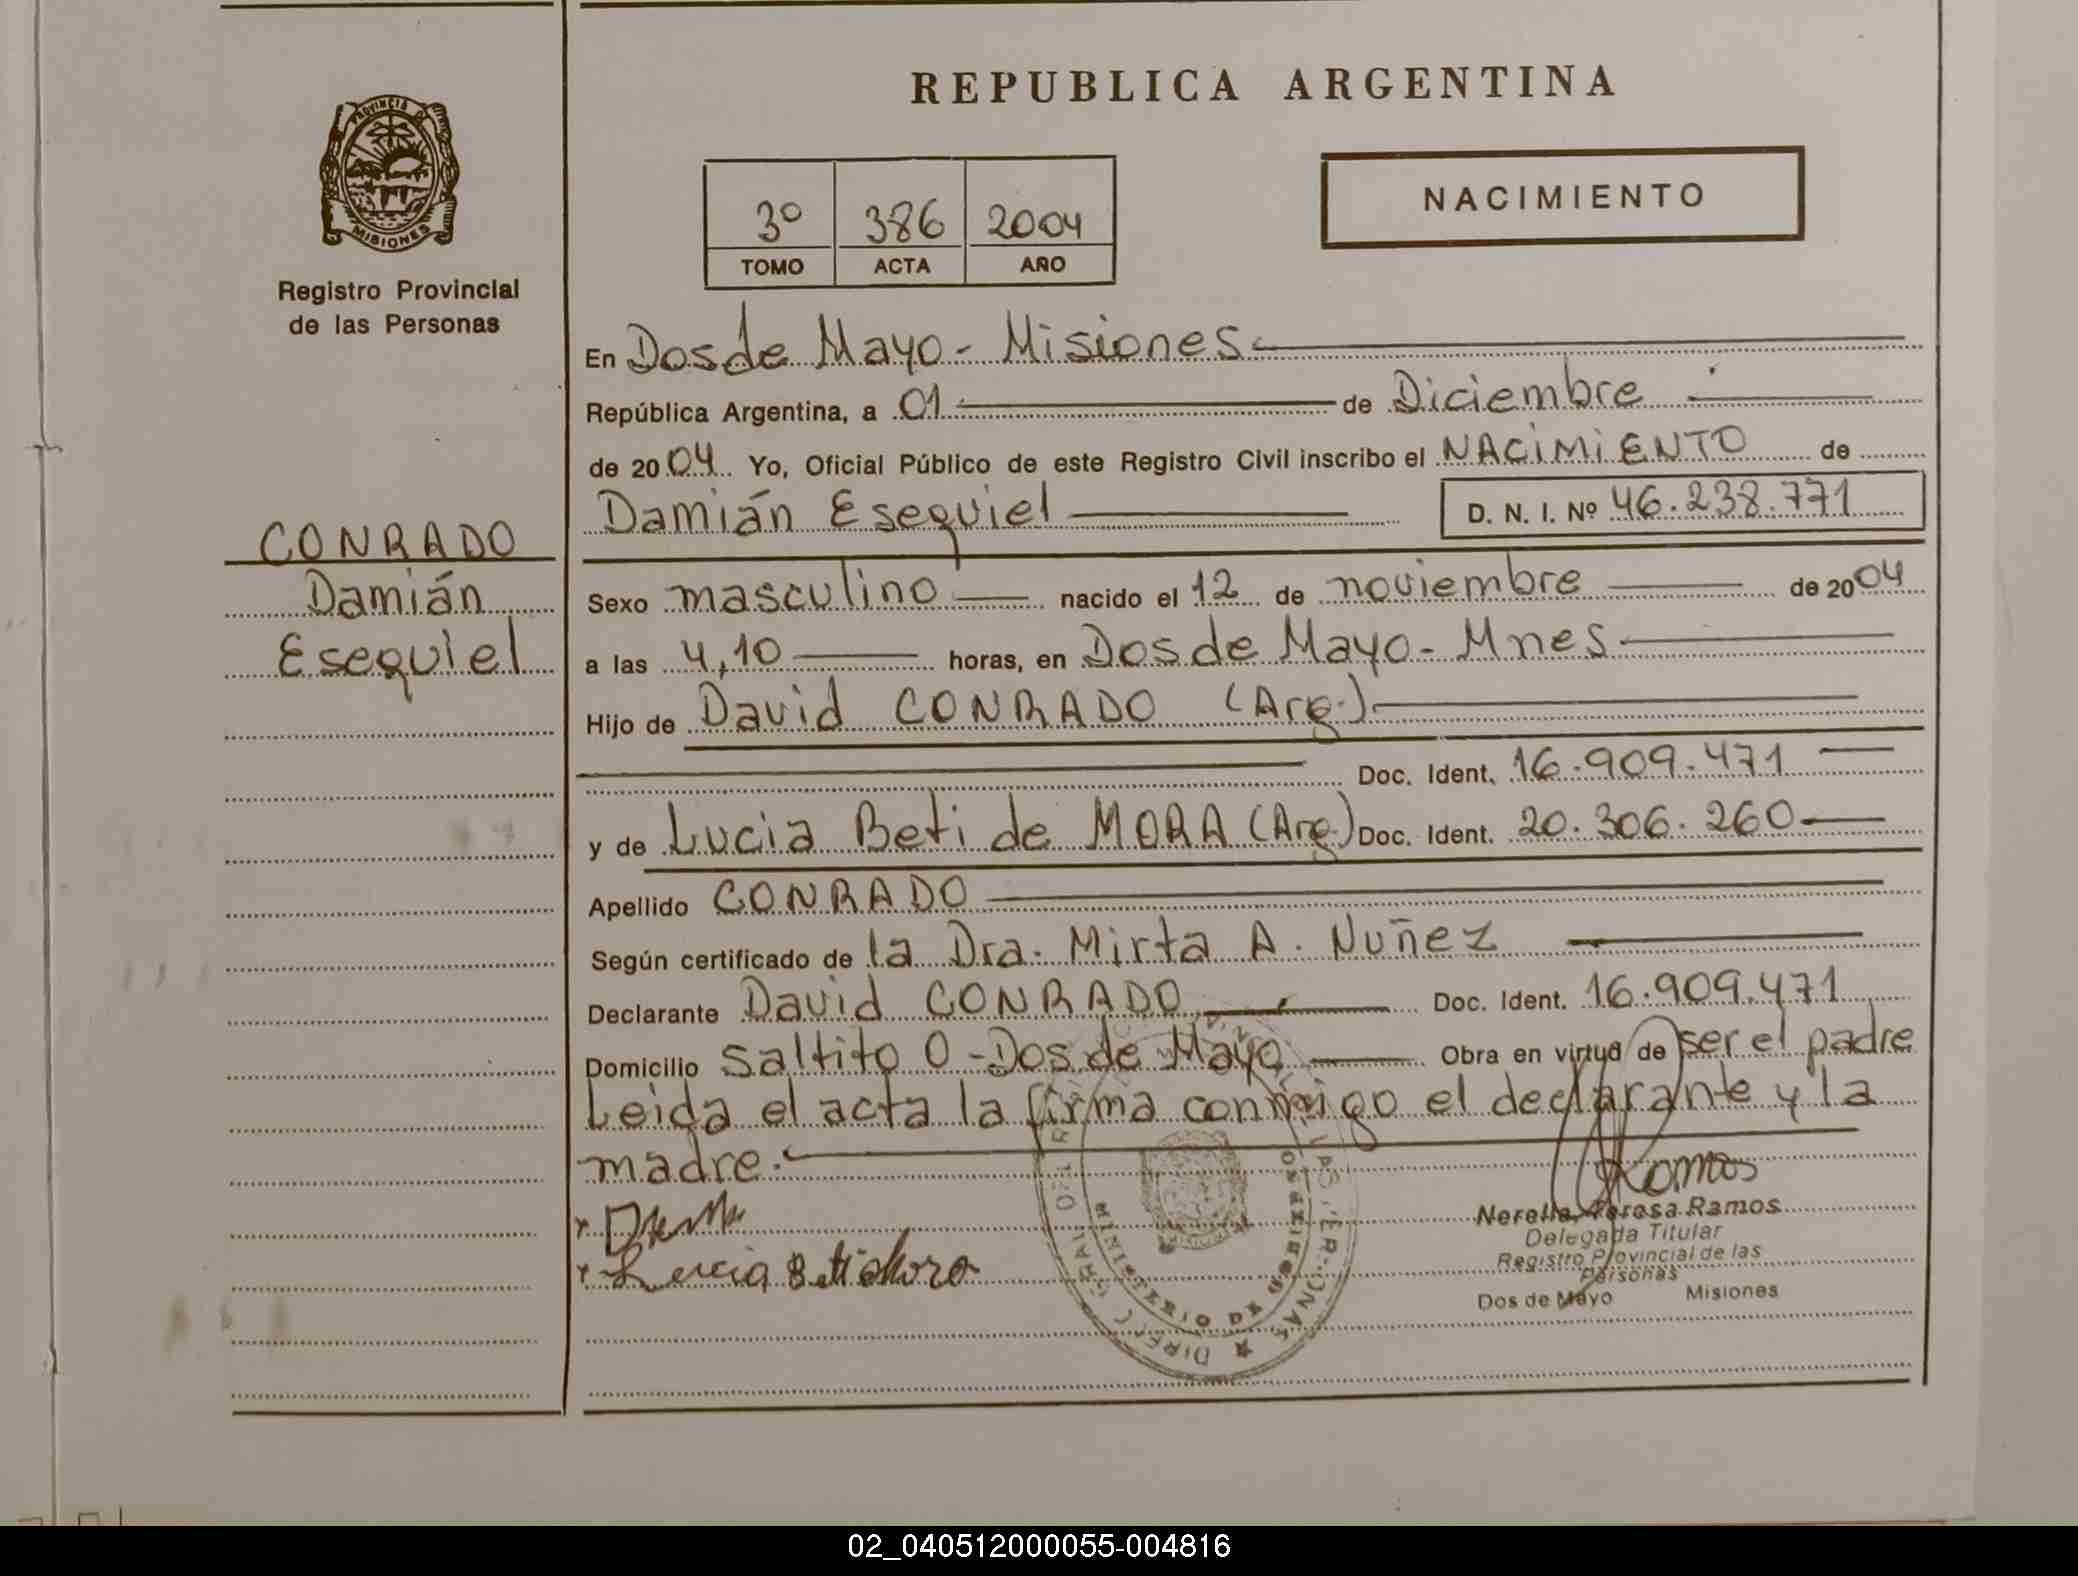 REPUBLICA ARGENTINA
PROVINCIA DE
MISIONES
Registro Provincial
de las Personas
NACIMIENTO
3º 386 2004
TOMO ACTA AÑO
CONRADO
Damián
Esequiel
En Dos de Mayo - Misiones
República Argentina, a 01 de Diciembre
de 2004 Yo, Oficial Público de este Registro Civil inscribo el NACIMIENTO de
Damián Esequiel D. N. I. Nº 46.238.771
Sexo masculino nacido el 12 de noviembre de 2004
a las 4,10 horas, en Dos de Mayo - Mnes
Hijo de David CONRADO (Arg.)
Doc. Ident. 16.909.471
y de Lucia Beti de MORA (Arg.) Doc. Ident. 20.306.260
Apellido CONRADO
Según certificado de la Dra. Mirta A. Nuñez
Declarante David CONRADO Doc. Ident. 16.909.471
Domicilio Saltito 0 - Dos de Mayo Obra en virtud de ser el padre
Leida el acta la firma conmigo el declarante y la
madre.
Ramos
Lucia Beti de Mora
Nerella Teresa Ramos
Delegada Titular
Registro Provincial de las
Personas
Dos de Mayo Misiones
MINISTERIO DE GOBIERNO
02_040512000055-004816